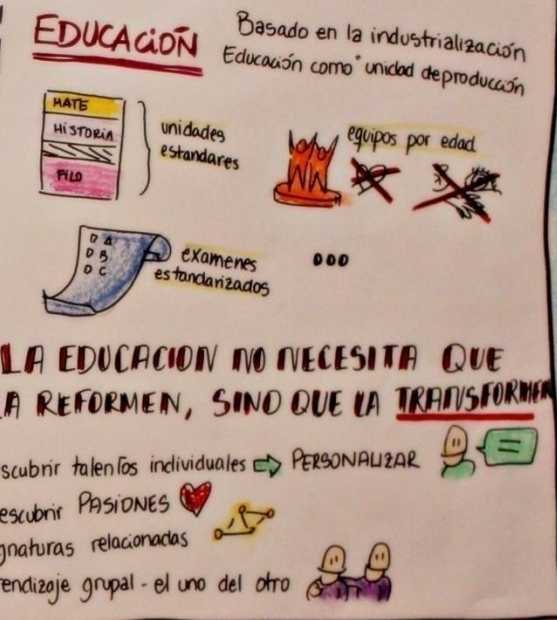 EDUCACIÓN
Basado en la industrialización
Educación como "unidad de producción
MATE
HISTORIA
FILO
unidades
estandares
equipos por edad
D A
D B
D C
examenes
estandarizados
LA EDUCACION NO NECESITA QUE
A REFORMEN, SINO QUE LA TRANSFORMEN
scubrir talentos individuales ⇨ PERSONALIZAR
escubrir PASIONES
gnaturas relacionadas
endizaje grupal - el uno del otro